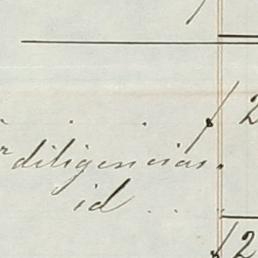 . . . ƒ 2
r diligencias.
id . . .
ƒ 2